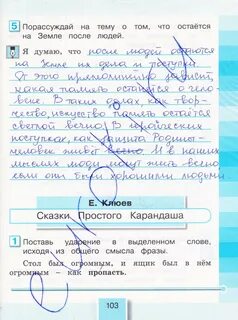 5 Порассуждай на тему о том, что остаётся
на Земле после людей.
Я думаю, что после людей остаются
на Земле их дела и поступки.
От этого прямолинейно зависит,
какая память останется о чело-
веке. В таких делах, как твор-
чество, искусство память остаётся
светлой вечно. В геройических
поступках, как защита Родины-
человек живёт вечно. И в наших
мыслях люди могут жить вечно,
если они были хорошими людьми.
Е. Клюев
Сказки Простого Карандаша
1 Поставь ударение в выделенном слове,
исходя из общего смысла фразы.
Стол был огромным, и ящик был в нём
огромным – как пропасть.
103